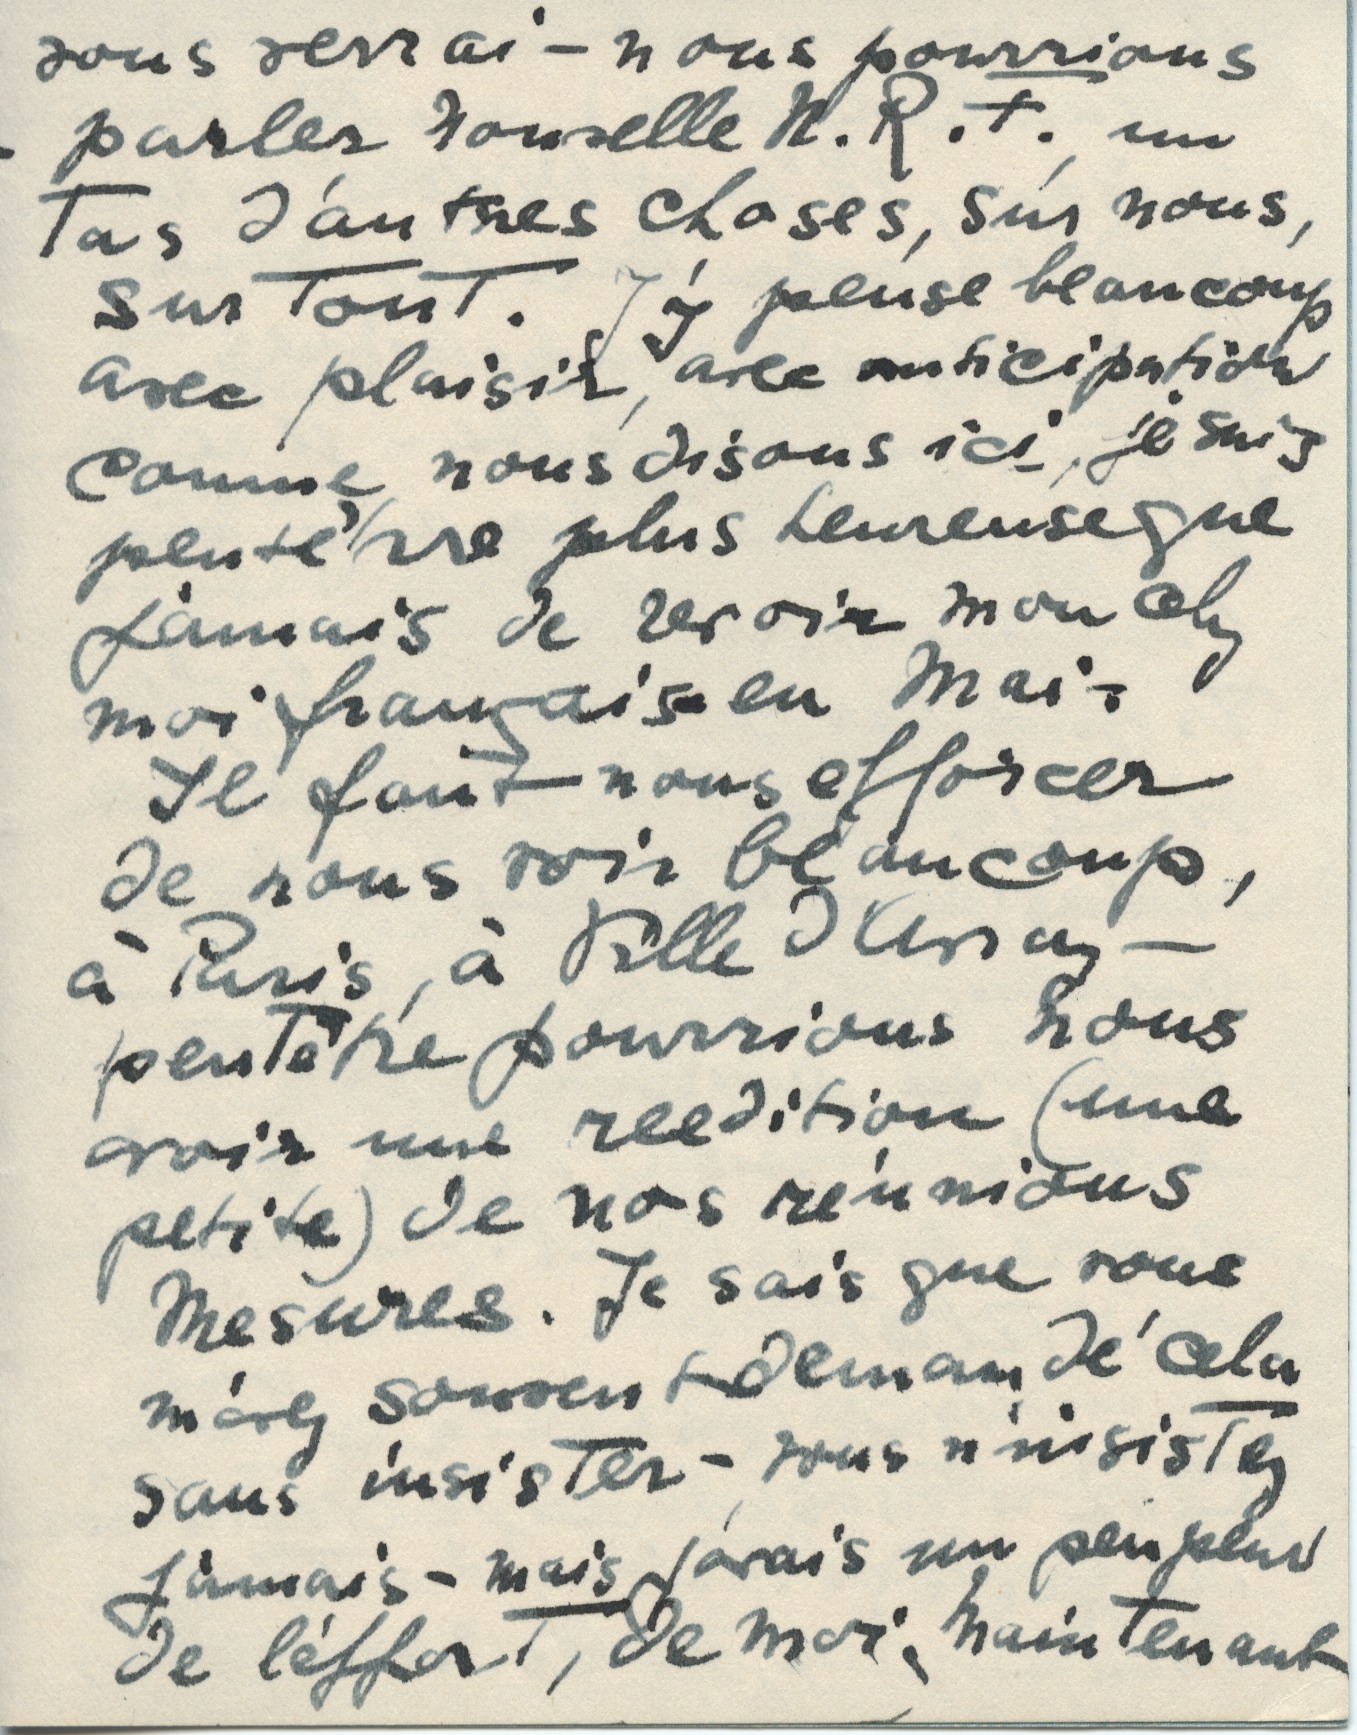 vous verrai – nous pourrions
parler Nouvelle N.R.F., un
tas d'autres choses, sur nous,
sur tout. J'y pense beaucoup
avec plaisir, avec anticipation
comme nous disons ici, je suis
peut être plus heureuse que
jamais de revoir mon chez
moi français en Mai.
Il faut nous efforcer
de nous voir beaucoup,
à Paris, à Ville d'Avray –
peut être pourrions nous
avoir une reedition (une
petite) de nos réunions
Mesures. Je sais que vous
m'avez souvent demandé cela
sans insister – vous n'insistez
jamais – mais j'avais un peu peur
de l'effort, de moi. Maintenant